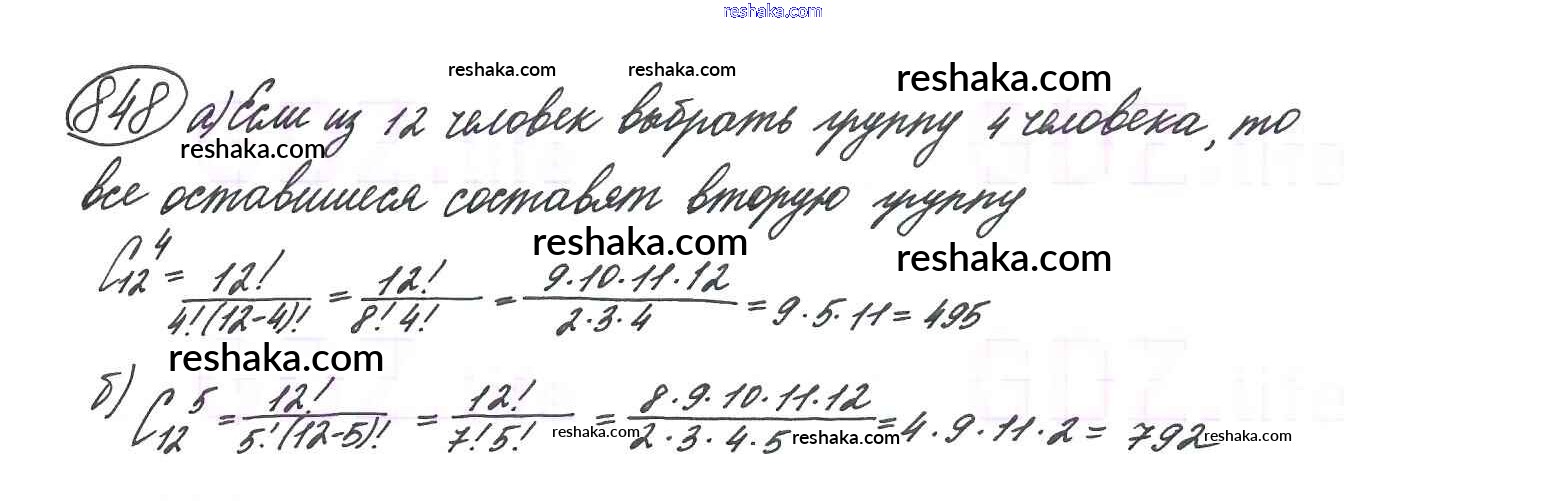 reshaka.com
reshaka.com reshaka.com reshaka.com
848 а) Если из 12 человек выбрать группу 4 человека, то
reshaka.com
все оставшиеся составят вторую группу
reshaka.com reshaka.com
C₁₂⁴ = 12! / 4!(12-4)! = 12! / 8! 4! = 9·10·11·12 / 2·3·4 = 9·5·11 = 495
reshaka.com
б) C₁₂⁵ = 12! / 5!(12-5)! = 12! / 7! 5! = 8·9·10·11·12 / 2·3·4·5 = 4·9·11·2 = 792
reshaka.com reshaka.com reshaka.com